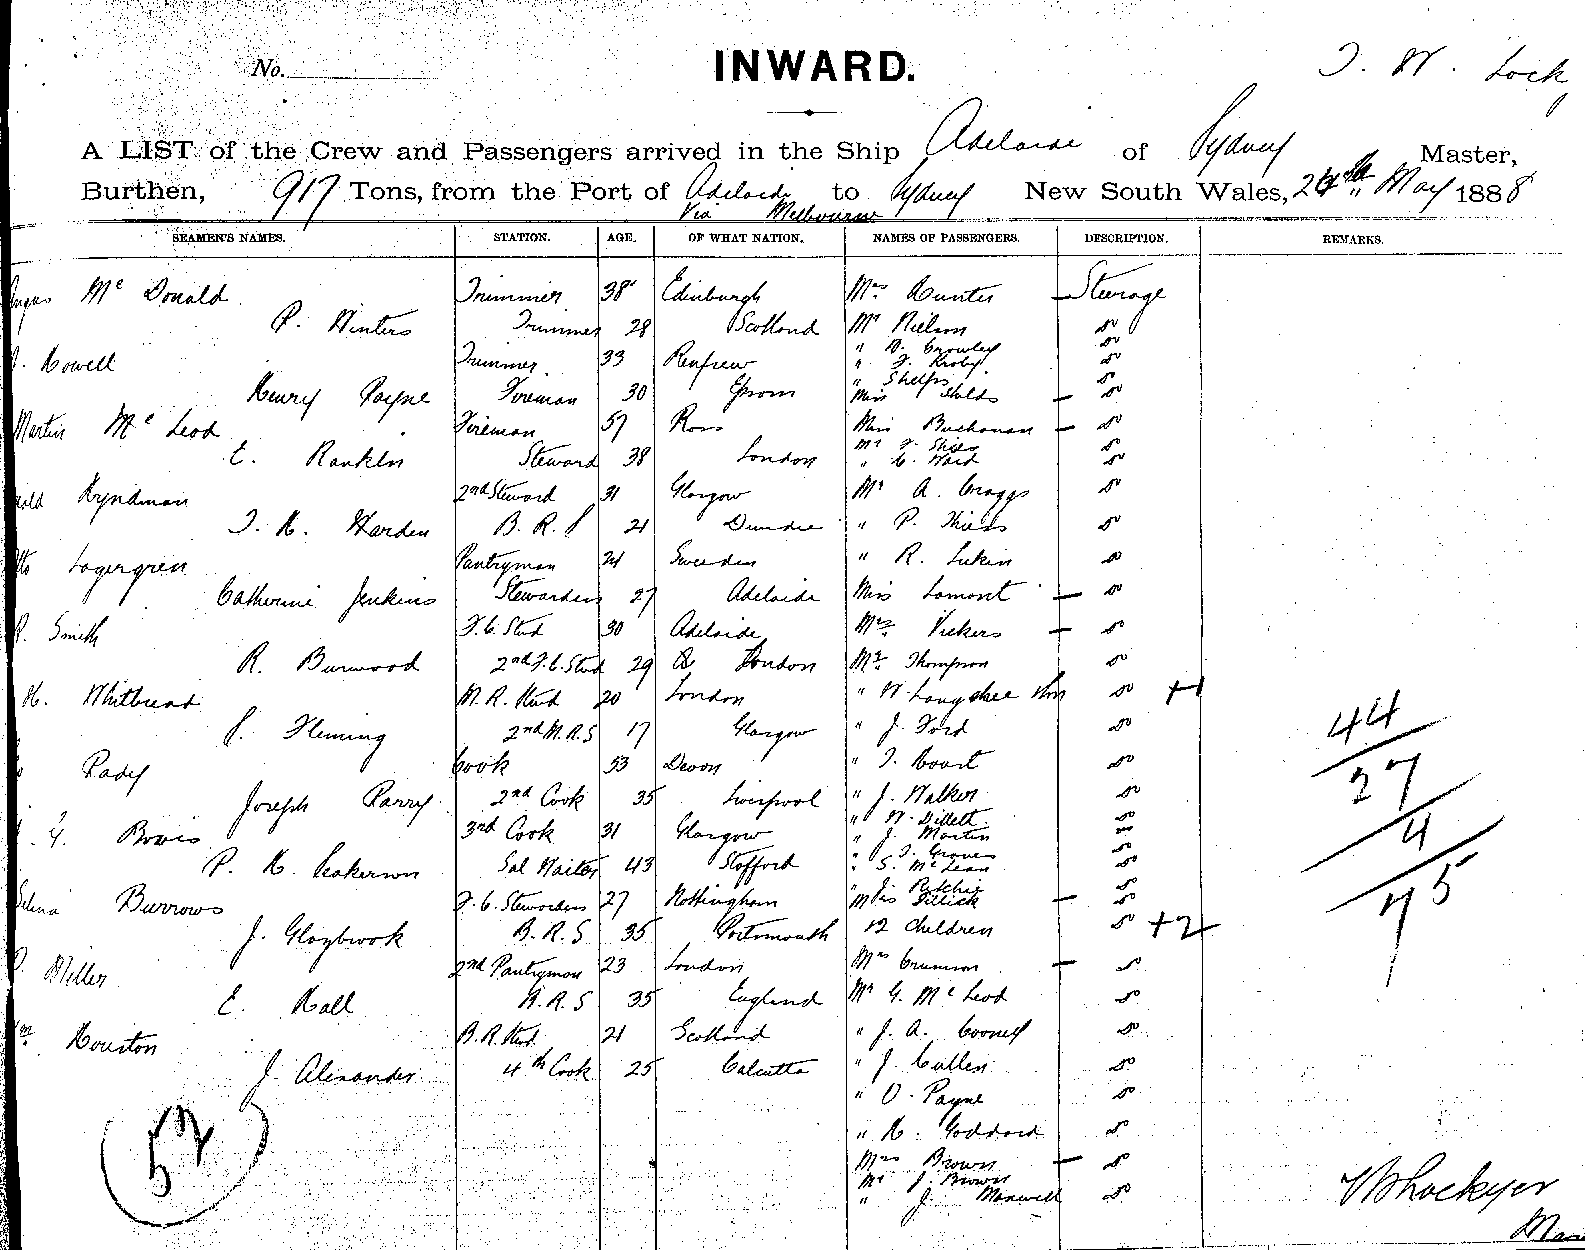 No.
INWARD.
T. W. Lock
A LIST of the Crew and Passengers arrived in the Ship Adelaide of Sydney Master,
Burthen, 917 Tons, from the Port of Adelaide to Sydney New South Wales, 24th May 1888
Via Melbourne
SEAMEN'S NAMES. STATION. AGE. OF WHAT NATION. NAMES OF PASSENGERS. DESCRIPTION. REMARKS.
Angus Mc Donald Trimmer 38 Edinburgh Mrs Hunter Steerage
P. Winters Trimmer 28 Scotland Mr Nielson do
Howell Trimmer 33 Renfrew " D. Crowley do
" F. Kroby do
Henry Payne Fireman 30 Epsom " Shelfs do
Miss Shilds do
Martin Mc Leod Fireman 57 Ross Miss Buchanan do
E. Rankln Steward 38 London Mr F. Shiers do
" C. Ward do
Hyndman 2nd Steward 31 Glasgow Mr A. Craggs do
J. H. Harden B. R. S 21 Dundee " P. Thiess do
Lagergren Pantryman 24 Sweeden " R. Lukin do
Catherine Jenkins Stewardess 27 Adelaide Miss Lamont do
R. Smith F. C. Stud 30 Adelaide Mrs Vickers do
R. Burwood 2nd F. C. Stud 29 London Mr Thompson do
H. Whitbread M. R. Stud 20 London " W. Longshee do +1
J. Fleming 2nd M.R.S 17 Glasgow " J. Ford do
Pady Cook 33 Devon " T. Court do
Joseph Parry 2nd Cook 35 Liverpool " J. Walker do
Y. Bowis 3rd Cook 31 Glasgow " W. Dillett do
" J. Martin do
P. H. Leakerson Sal Waiter 43 Stafford " T. Groves do
" S. McLean do
Selina Burrows F. C. Stewardess 27 Nottingham " J. Ritchie do
Miss Dillick do
J. Glazbrook B. R. S 35 Portsmouth 12 Children do +2
Miller 2nd Pantryman 23 London Mrs Crumson do
E. Hall R.R.S 35 England Mr G. McLeod do
Wm Houston B. R. Stud 21 Scotland " J. A. Cooney do
J. Alexander 4th Cook 25 Calcutta " J. Cullen do
" O. Payne do
" H. Goddard do
Mrs Brown do
Mr J. Brown
" J. Maxwell do
44
27
4
75
52
WBLockyer